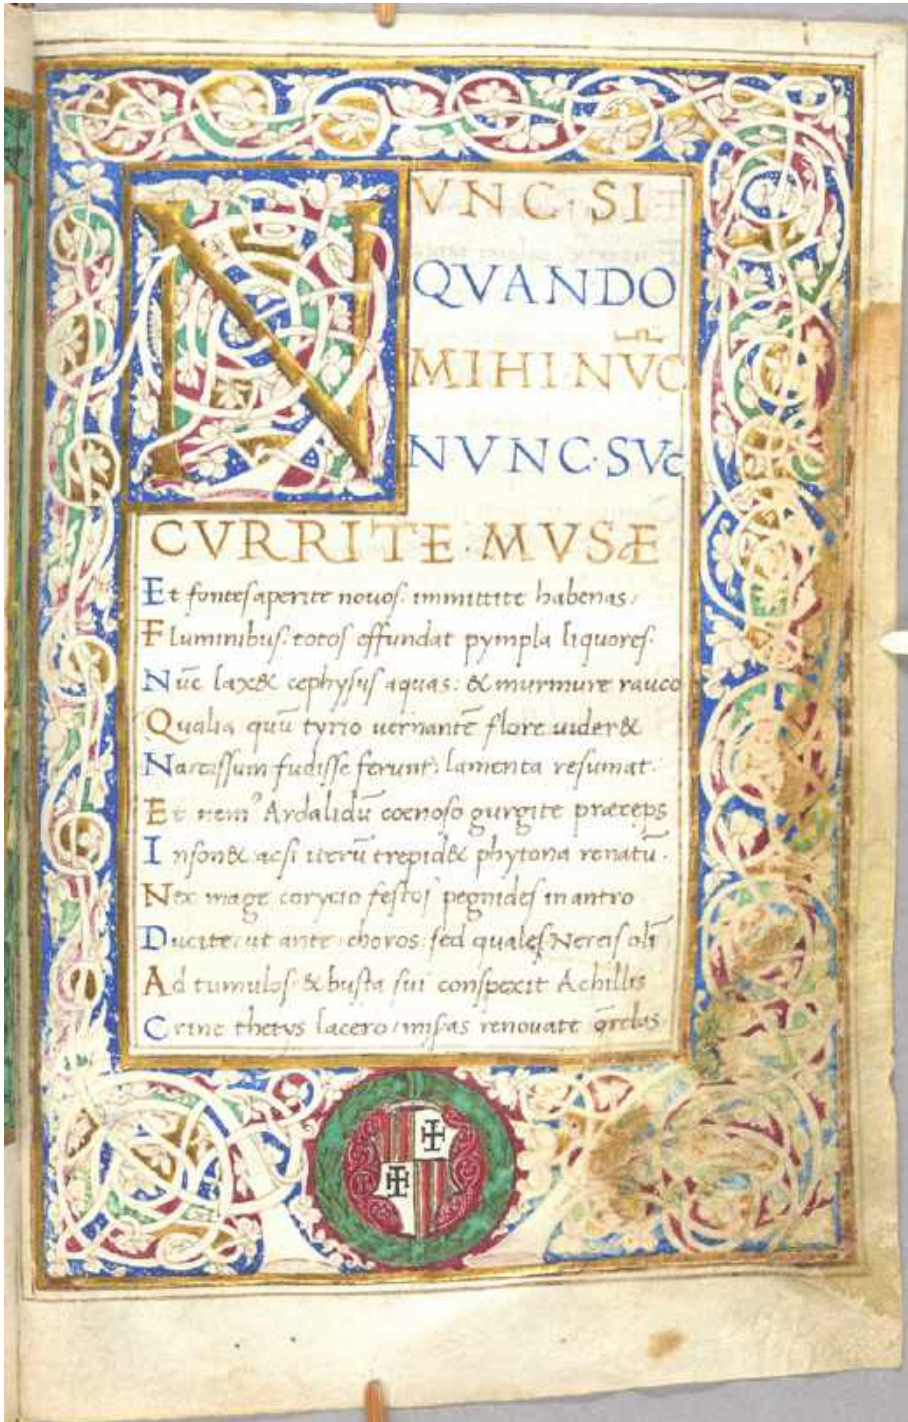 NVNC·SI
QVANDO
MIHI·NV̄C
NVNC·SVC
CVRRITE·MVSÆ
Et fontes aperite novos: immittite habenas:
Fluminibus: totos effundat pympla liquores:
Nūc lax& cephysus aquas: & murmure rauco
Qualia quū tyrio uernantē flore uider&
Narcissum fudisse ferunt: lamenta resumat.
Et nem⁹ Ardalidū coenoso gurgite præceps
Inson& acsi iterū trepid& phytona renatū.
Nec mage corycio festos pegnides in antro
Ducite: ut ante: choros: sed quales Nereis olī
Ad tumulos: & busta sui conspexit Achillis
Crine thetys lacero/ misas renouate q̄relas.